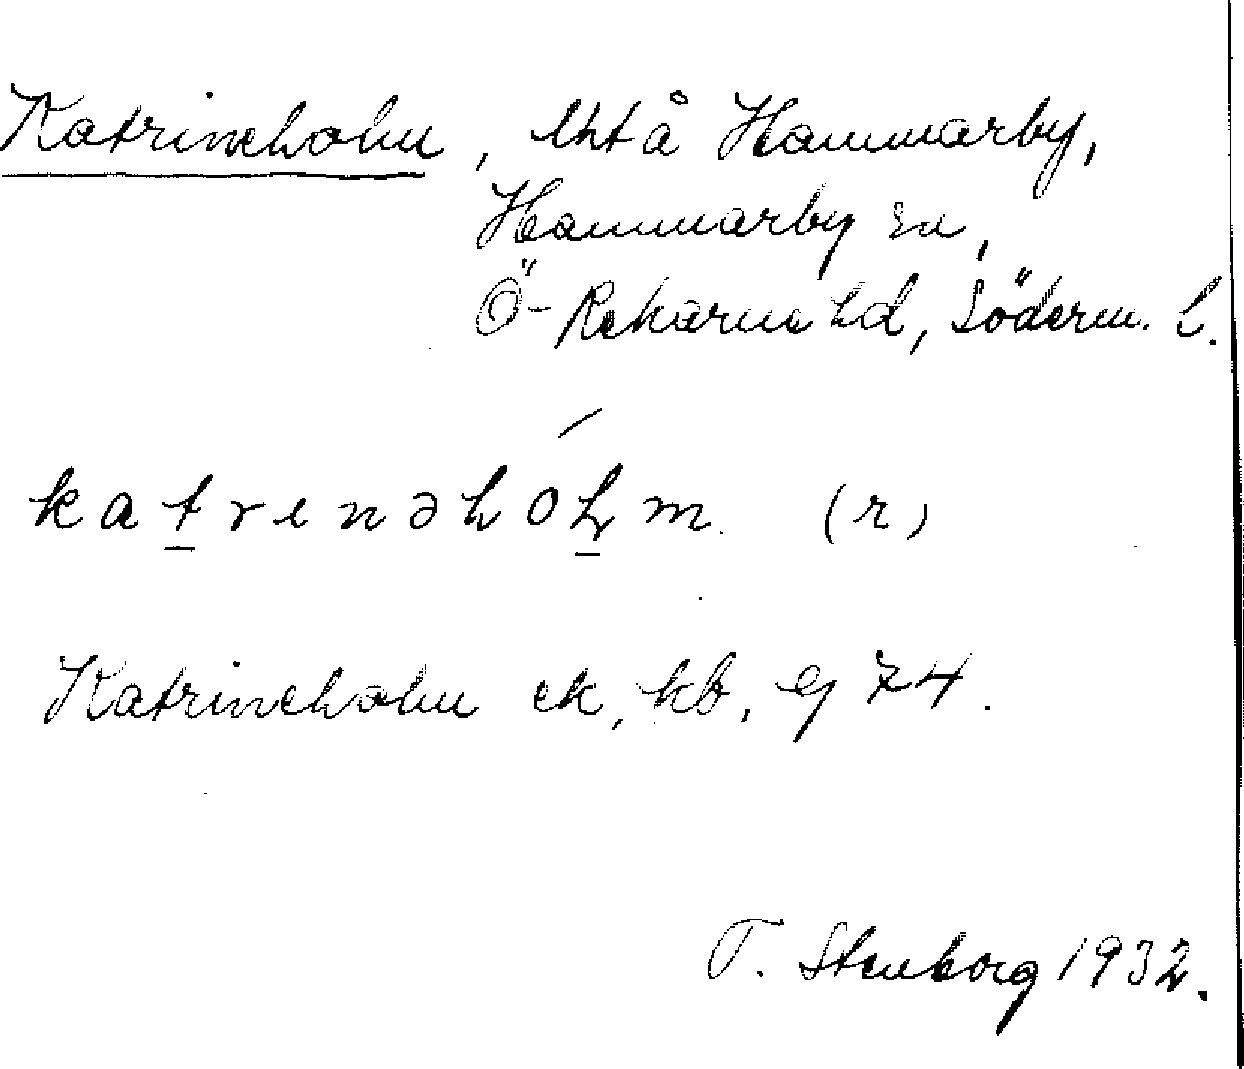 Katrineholm, lht å Hammarby,
Hammarby sn,
Ö-Rekarne hd, Söderm. l.
katrenəhólm (r)
Katrineholm ek, kb, Gj 74.
T. Stenborg 1932.